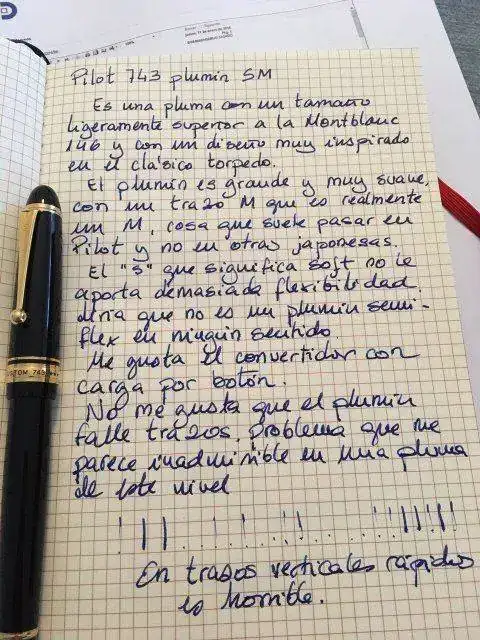 Pilot 743 plumin SM
Es una pluma con un tamaño
ligeramente superior a la Montblanc
146 y con un diseño muy inspirado
en el clásico torpedo.
El plumin es grande y muy suave,
con un trazo M que es realmente
un M, cosa que suele pasar en
Pilot y no en otras japonesas.
El "S" que significa soft no le
aporta demasiada flexibilidad.
diria que no es un plumin semi-
flex en ningún sentido.
Me gusta el convertidor con
carga por botón.
No me gusta que el plumin
falle trazos, problema que me
parece inadmisible en una pluma
de este nivel
En trazos verticales rápidos
es horrible.
CUSTOM 743